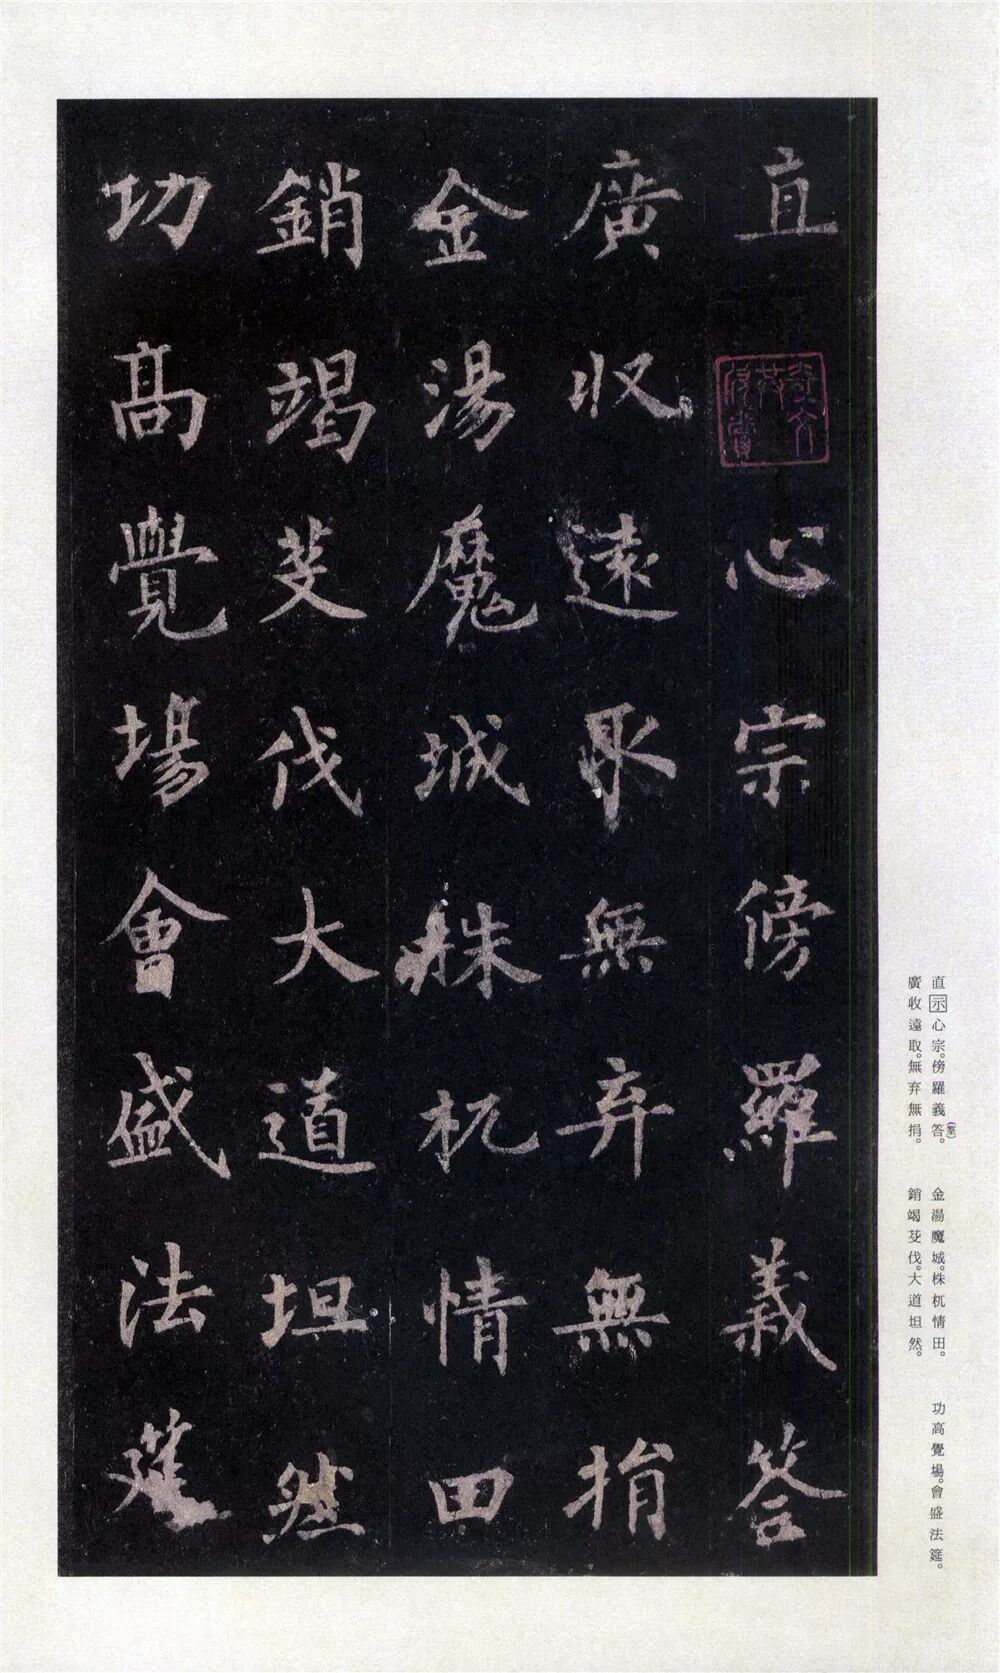 直心宗傍羅義答
廣收遠取無弃無捐
金湯魔城株杌情田
銷竭芟伐大道坦然
功高覺場會盛法筵
直示心宗。傍羅義答。(筌)
廣收遠取。無弃無捐。
金湯魔城。株杌情田。
銷竭芟伐。大道坦然。
功高覺場。會盛法筵。